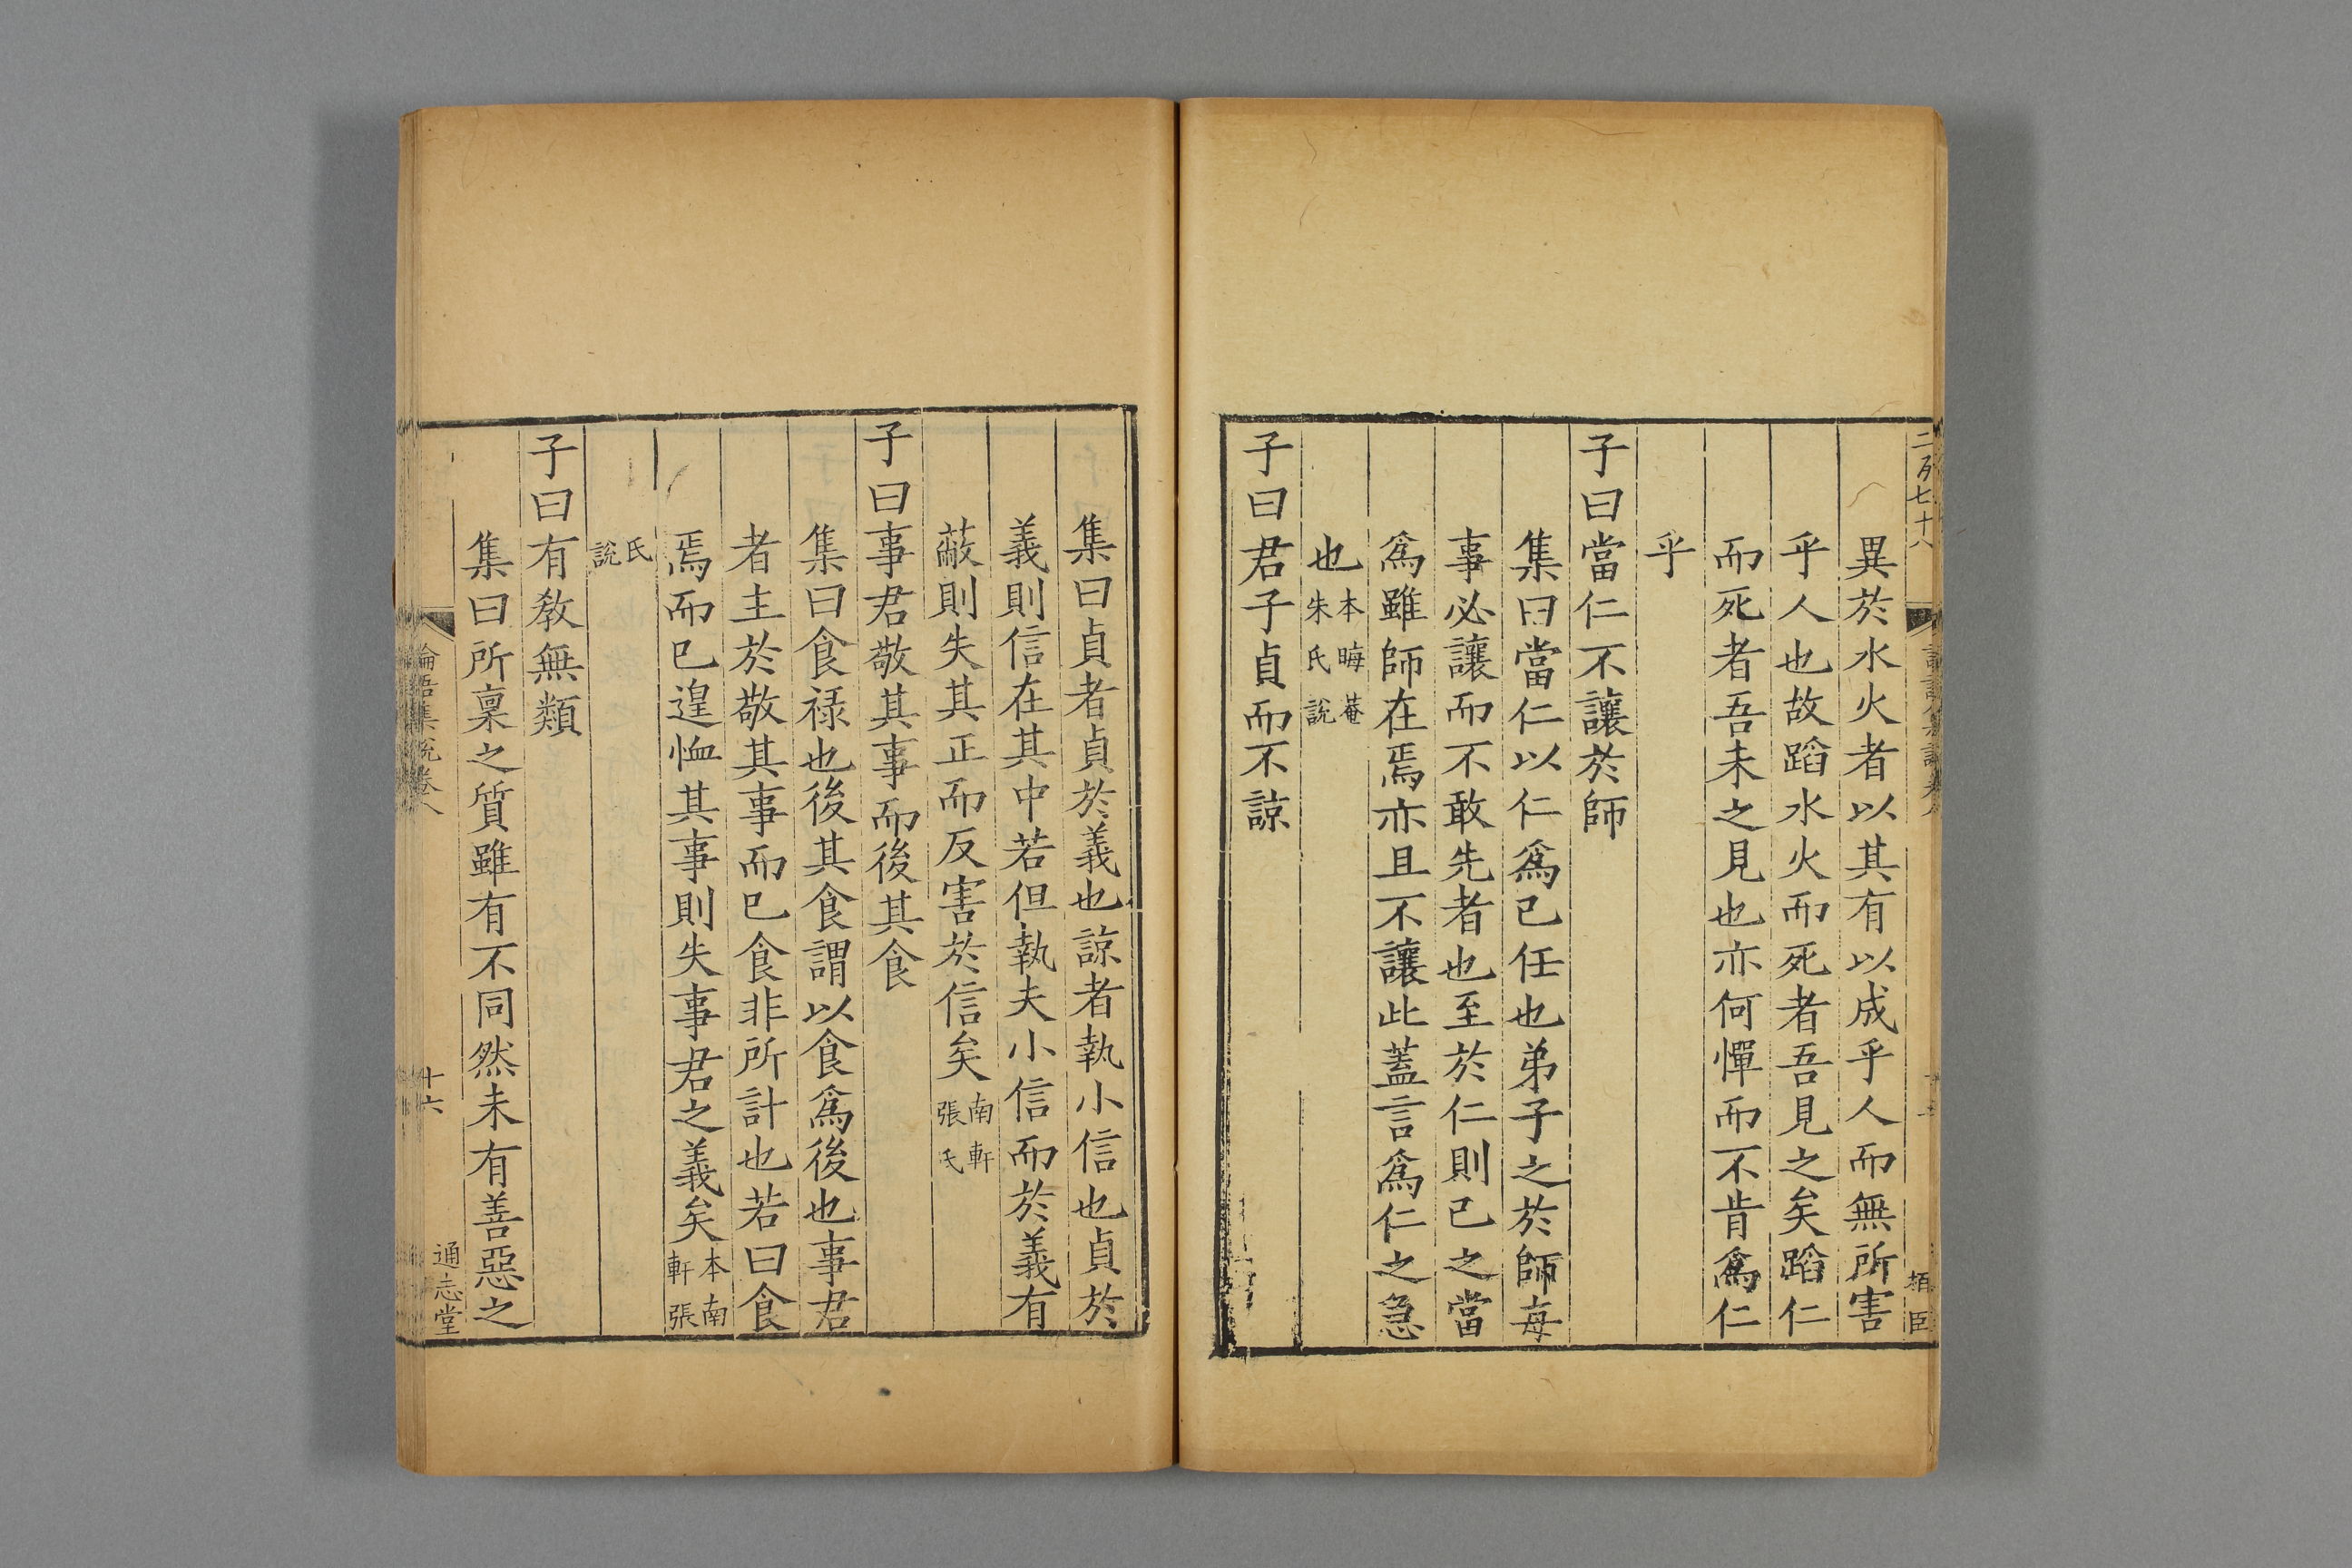 異於水火者以其有以成乎人而無所害
乎人也故蹈水火而死者吾見之矣蹈仁
而死者吾未之見也亦何憚而不肯爲仁
乎
子曰當仁不讓於師
集曰當仁以仁爲己任也弟子之於師每
事必讓而不敢先者也至於仁則己之當
爲雖師在焉亦且不讓此蓋言爲仁之急
也本晦菴朱氏說
子曰君子貞而不諒
集曰貞者貞於義也諒者執小信也貞於
義則信在其中若但執夫小信而於義有
蔽則失其正而反害於信矣南軒張氏
子曰事君敬其事而後其食
集曰食禄也後其食謂以食爲後也事君
者主於敬其事而已食非所計也若曰食
焉而已遑恤其事則失事君之義矣本南軒張
氏說
子曰有教無類
集曰所稟之質雖有不同然未有善惡之
論語集說卷八
十六
通志堂